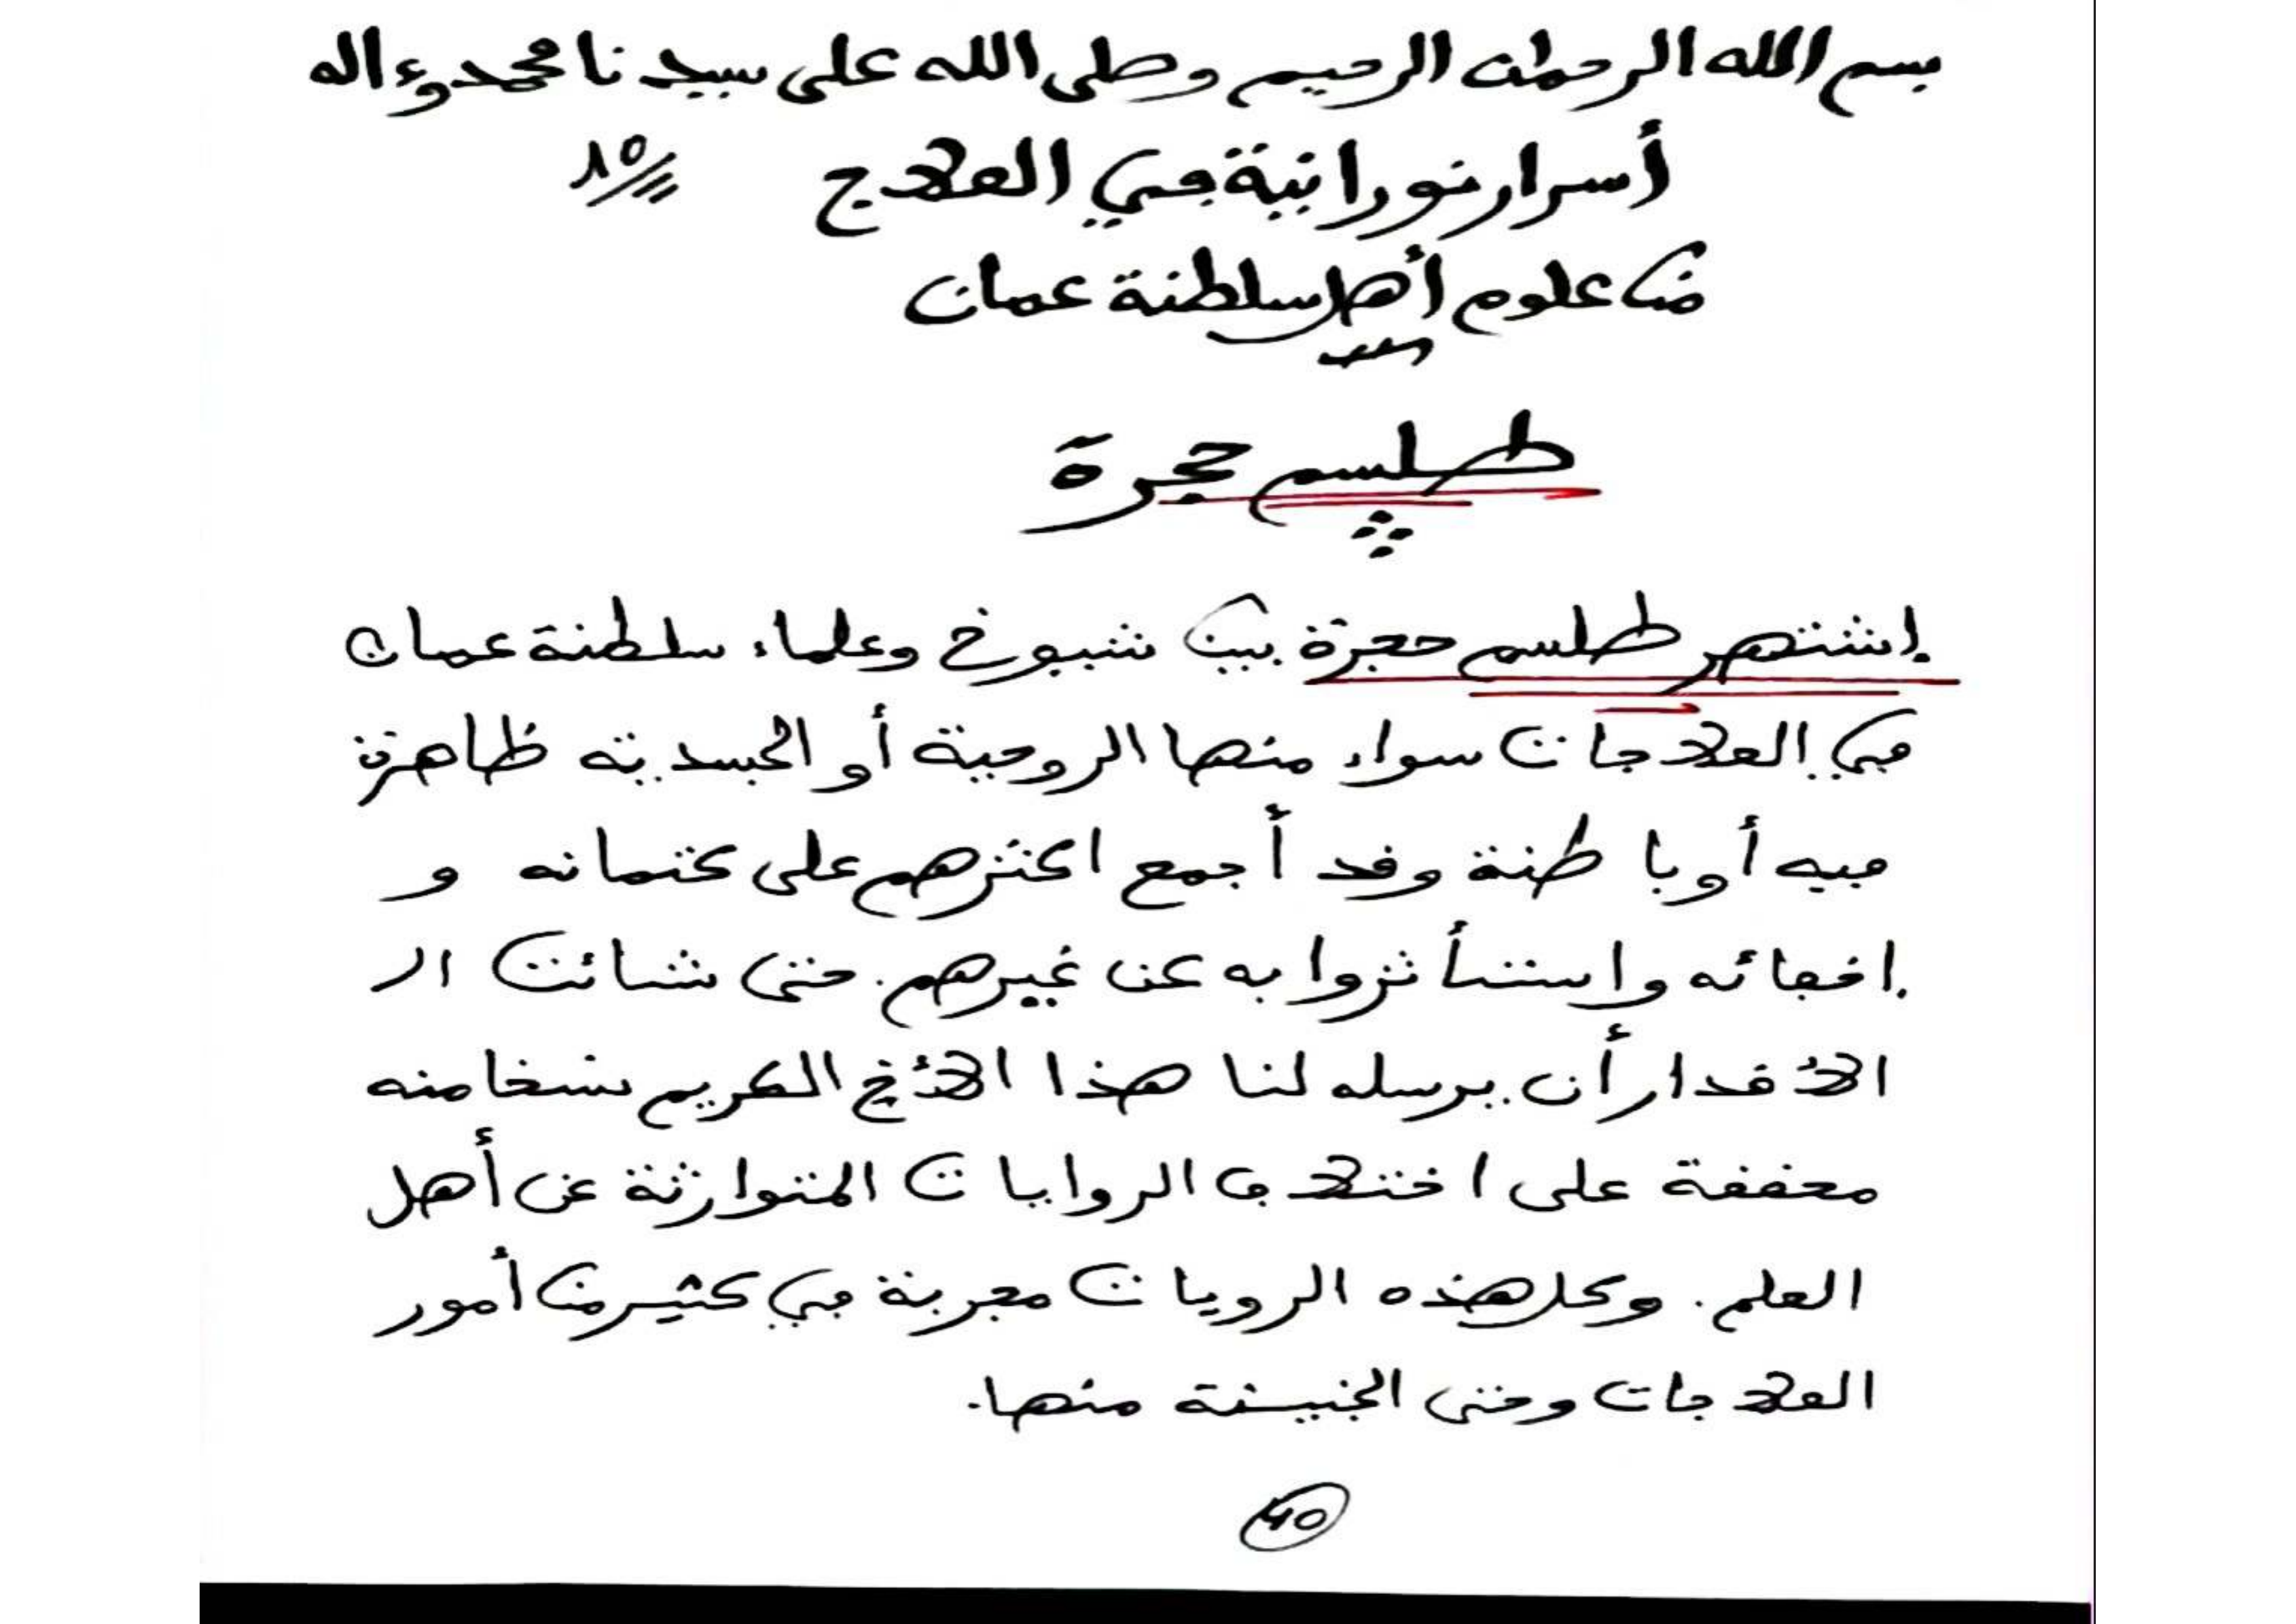 بسم الله الرحمان الرحيم وصلى الله على سيدنا محمد وءاله
أسرار نورانية في العلاج
من علوم أهل سلطنة عمان
طلسم حجرة
إشتهر طلسم حجرة بين شيوخ وعلماء سلطنة عمان
في العلاجات سواء منها الروحية أو الجسدية ظاهرة
فيه أو باطنة وقد أجمع اكثرهم على كتمانه و
إخفائه واستأثروا به عن غيرهم. حتى شائت ال
الأقدار أن يرسله لنا هذا الأخ الكريم نسخا منه
محققة على اختلاف الروايات المتوارثة عن أهل
العلم. وكل هذه الرويات مجربة في كثير من أمور
العلاجات وحتى الجنسية منها.